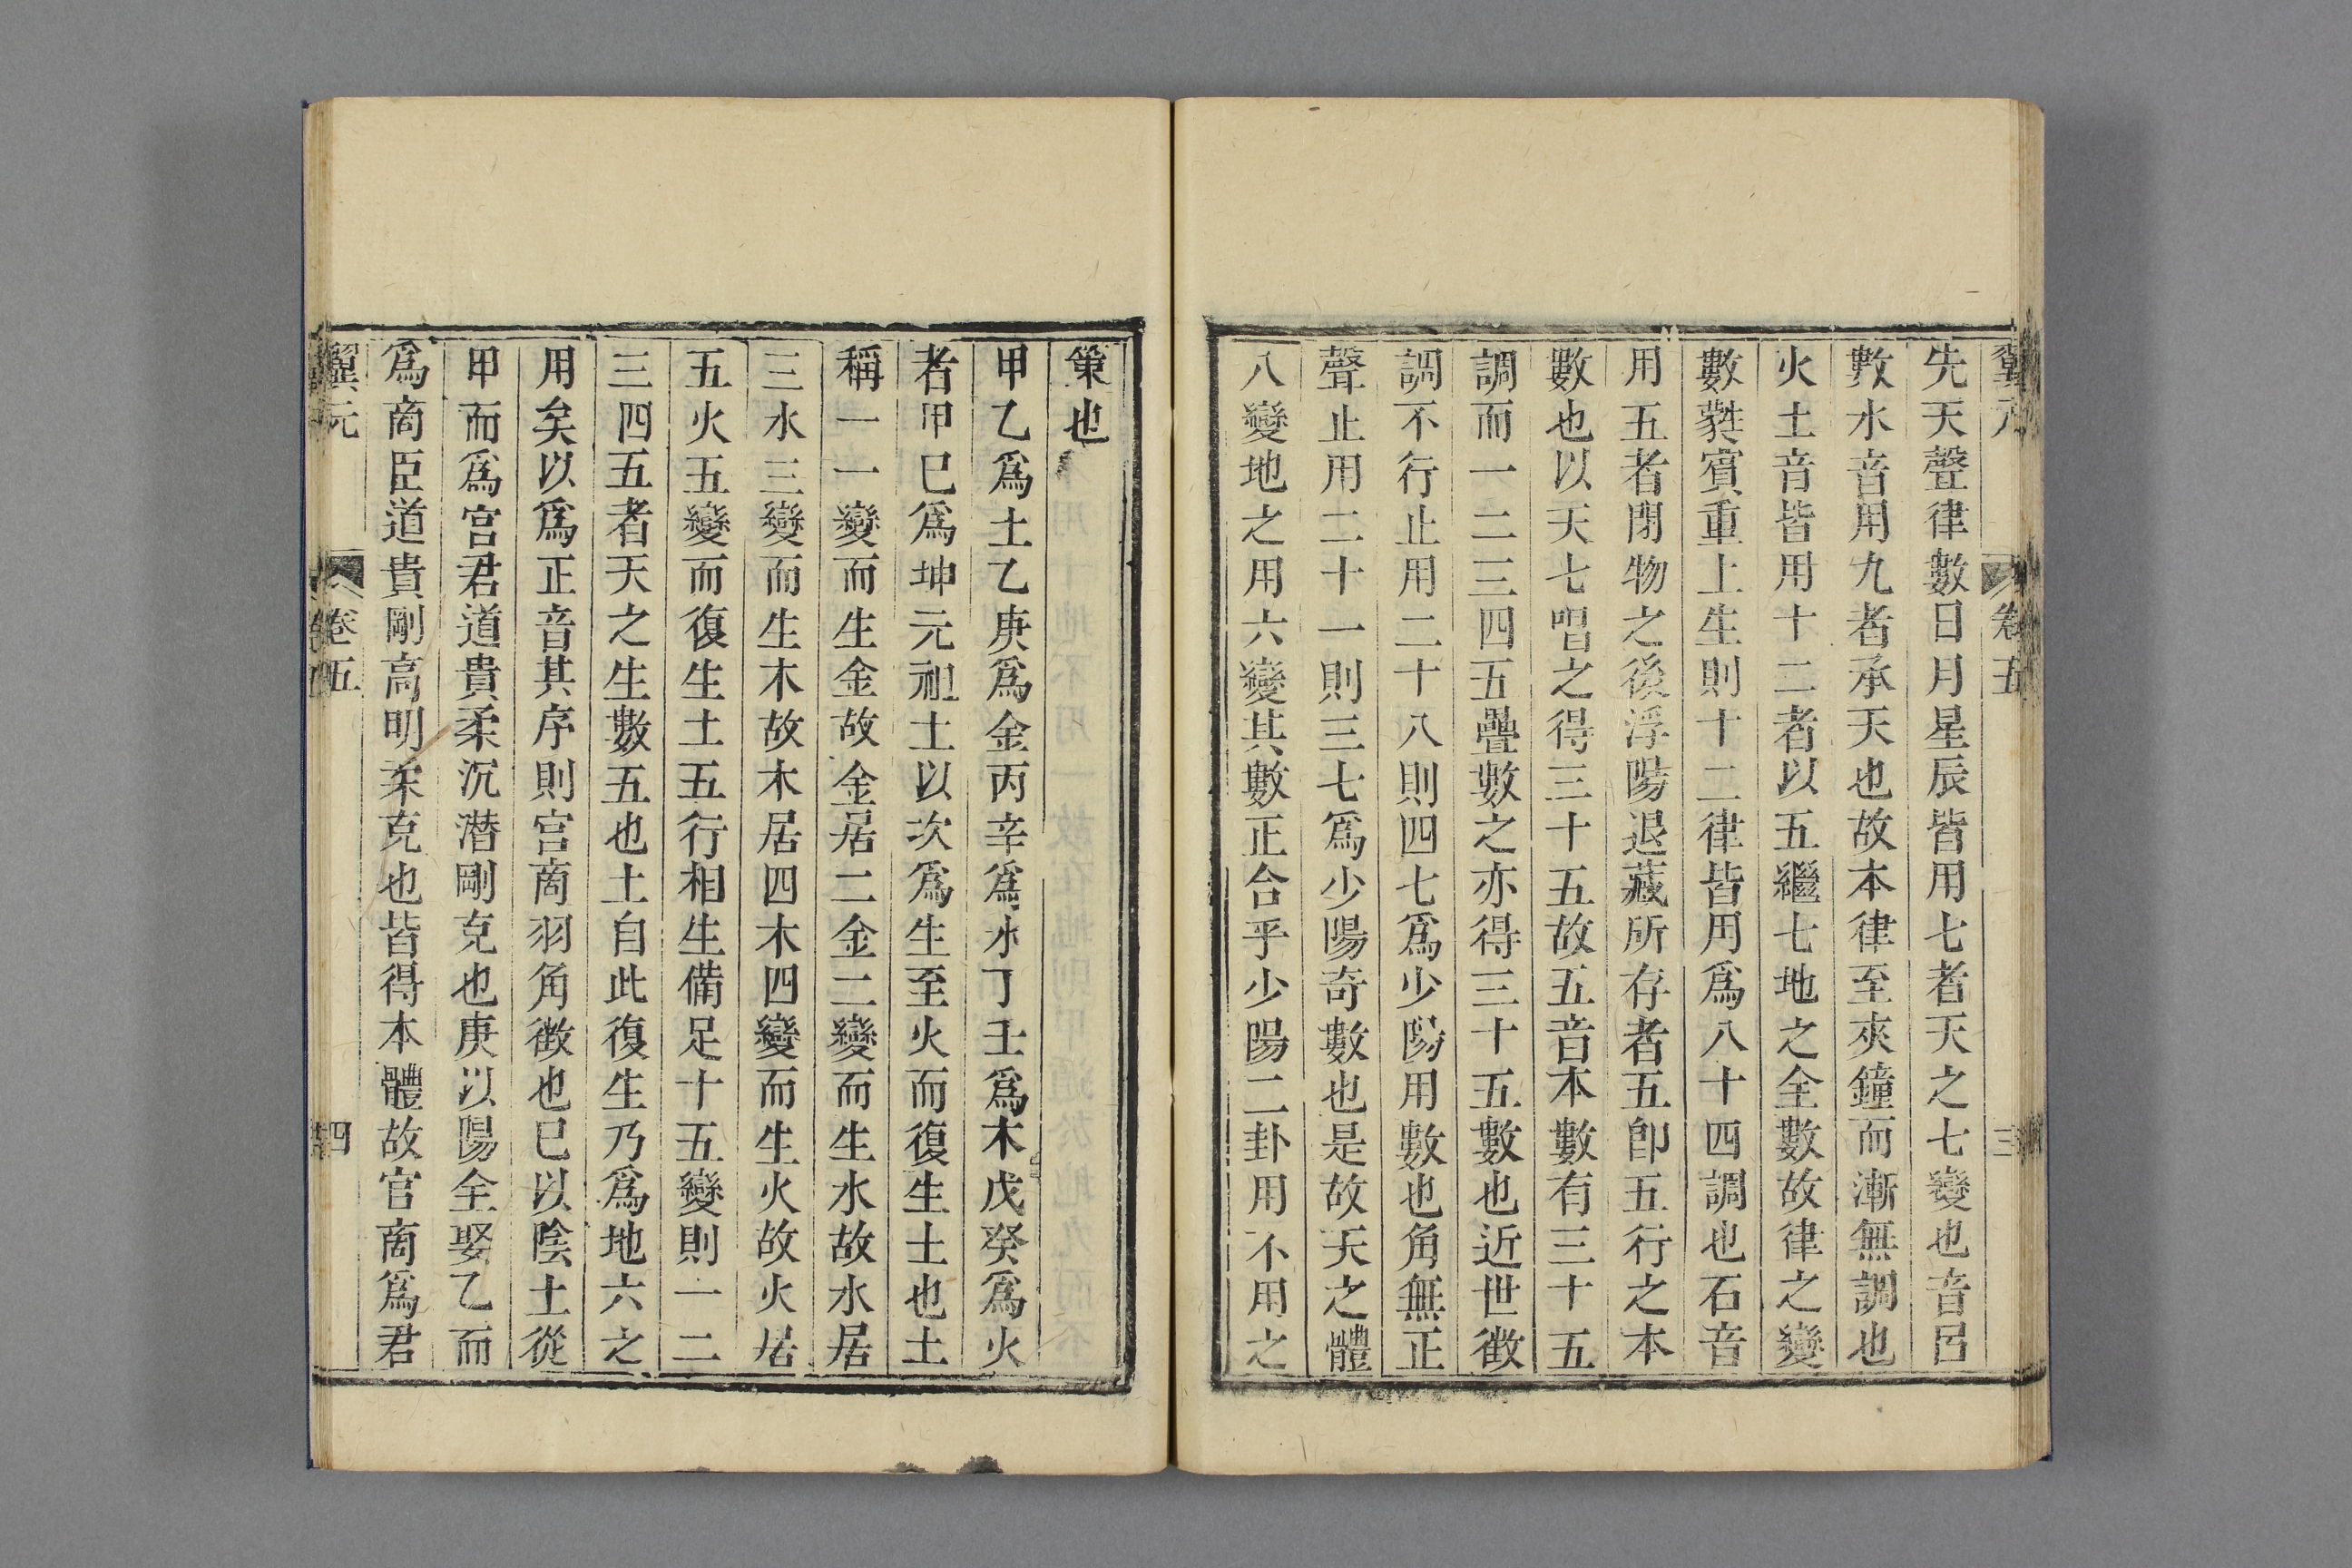 翼元 卷五 三
先天聲律數日月星辰皆用七者天之七變也音呂
數水音用九者承天也故本律至夾鐘而漸無調也
火土音皆用十二者以五繼七地之全數故律之變
數蕤賓重上生則十二律皆用爲八十四調也石音
用五者閉物之後浮陽退藏所存者五卽五行之本
數也以天七唱之得三十五故五音本數有三十五
調而一二三四五疊數之亦得三十五數也近世徵
調不行止用二十八則四七爲少陽用數也角無正
聲止用二十一則三七爲少陽奇數也是故天之體
八變地之用六變其數正合乎少陽二卦用不用之
策也
甲乙爲土乙庚爲金丙辛爲水丁壬爲木戊癸爲火
者甲巳爲坤元祖土以次爲生至火而復生土也土
稱一一變而生金故金居二金二變而生水故水居
三水三變而生木故木居四木四變而生火故火居
五火五變而復生土五行相生備足十五變則一二
三四五者天之生數五也土自此復生乃爲地六之
用矣以爲正音其序則宮商羽角徵也巳以陰土從
甲而爲宮君道貴柔沉潛剛克也庚以陽全娶乙而
爲商臣道貴剛高明柔克也皆得本體故官商爲君
翼元 卷五 四